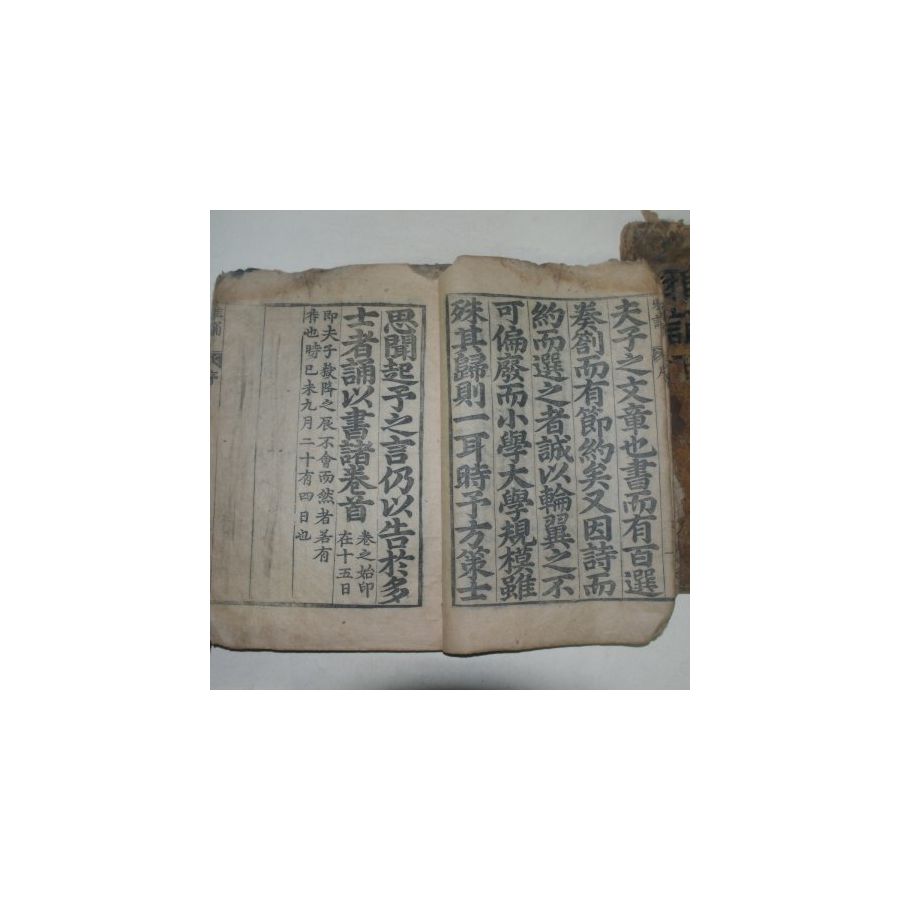 夫子之文章也書而有百選
奏劄而有節約矣又因詩而
約而選之者誠以輪翼之不
可偏廢而小學大學規模雖
殊其歸則一耳時予方策士
思聞起予之言仍以告於多
士者誦以書諸卷首
卷之始印
在十五日
即夫子敎降之辰不會而然者若有
待也時己未九月二十有四日也
雅誦
序
雅誦